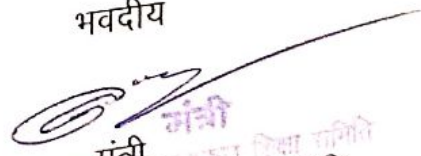 भवदीय
मंत्री
मंत्री
शिक्षा समिति